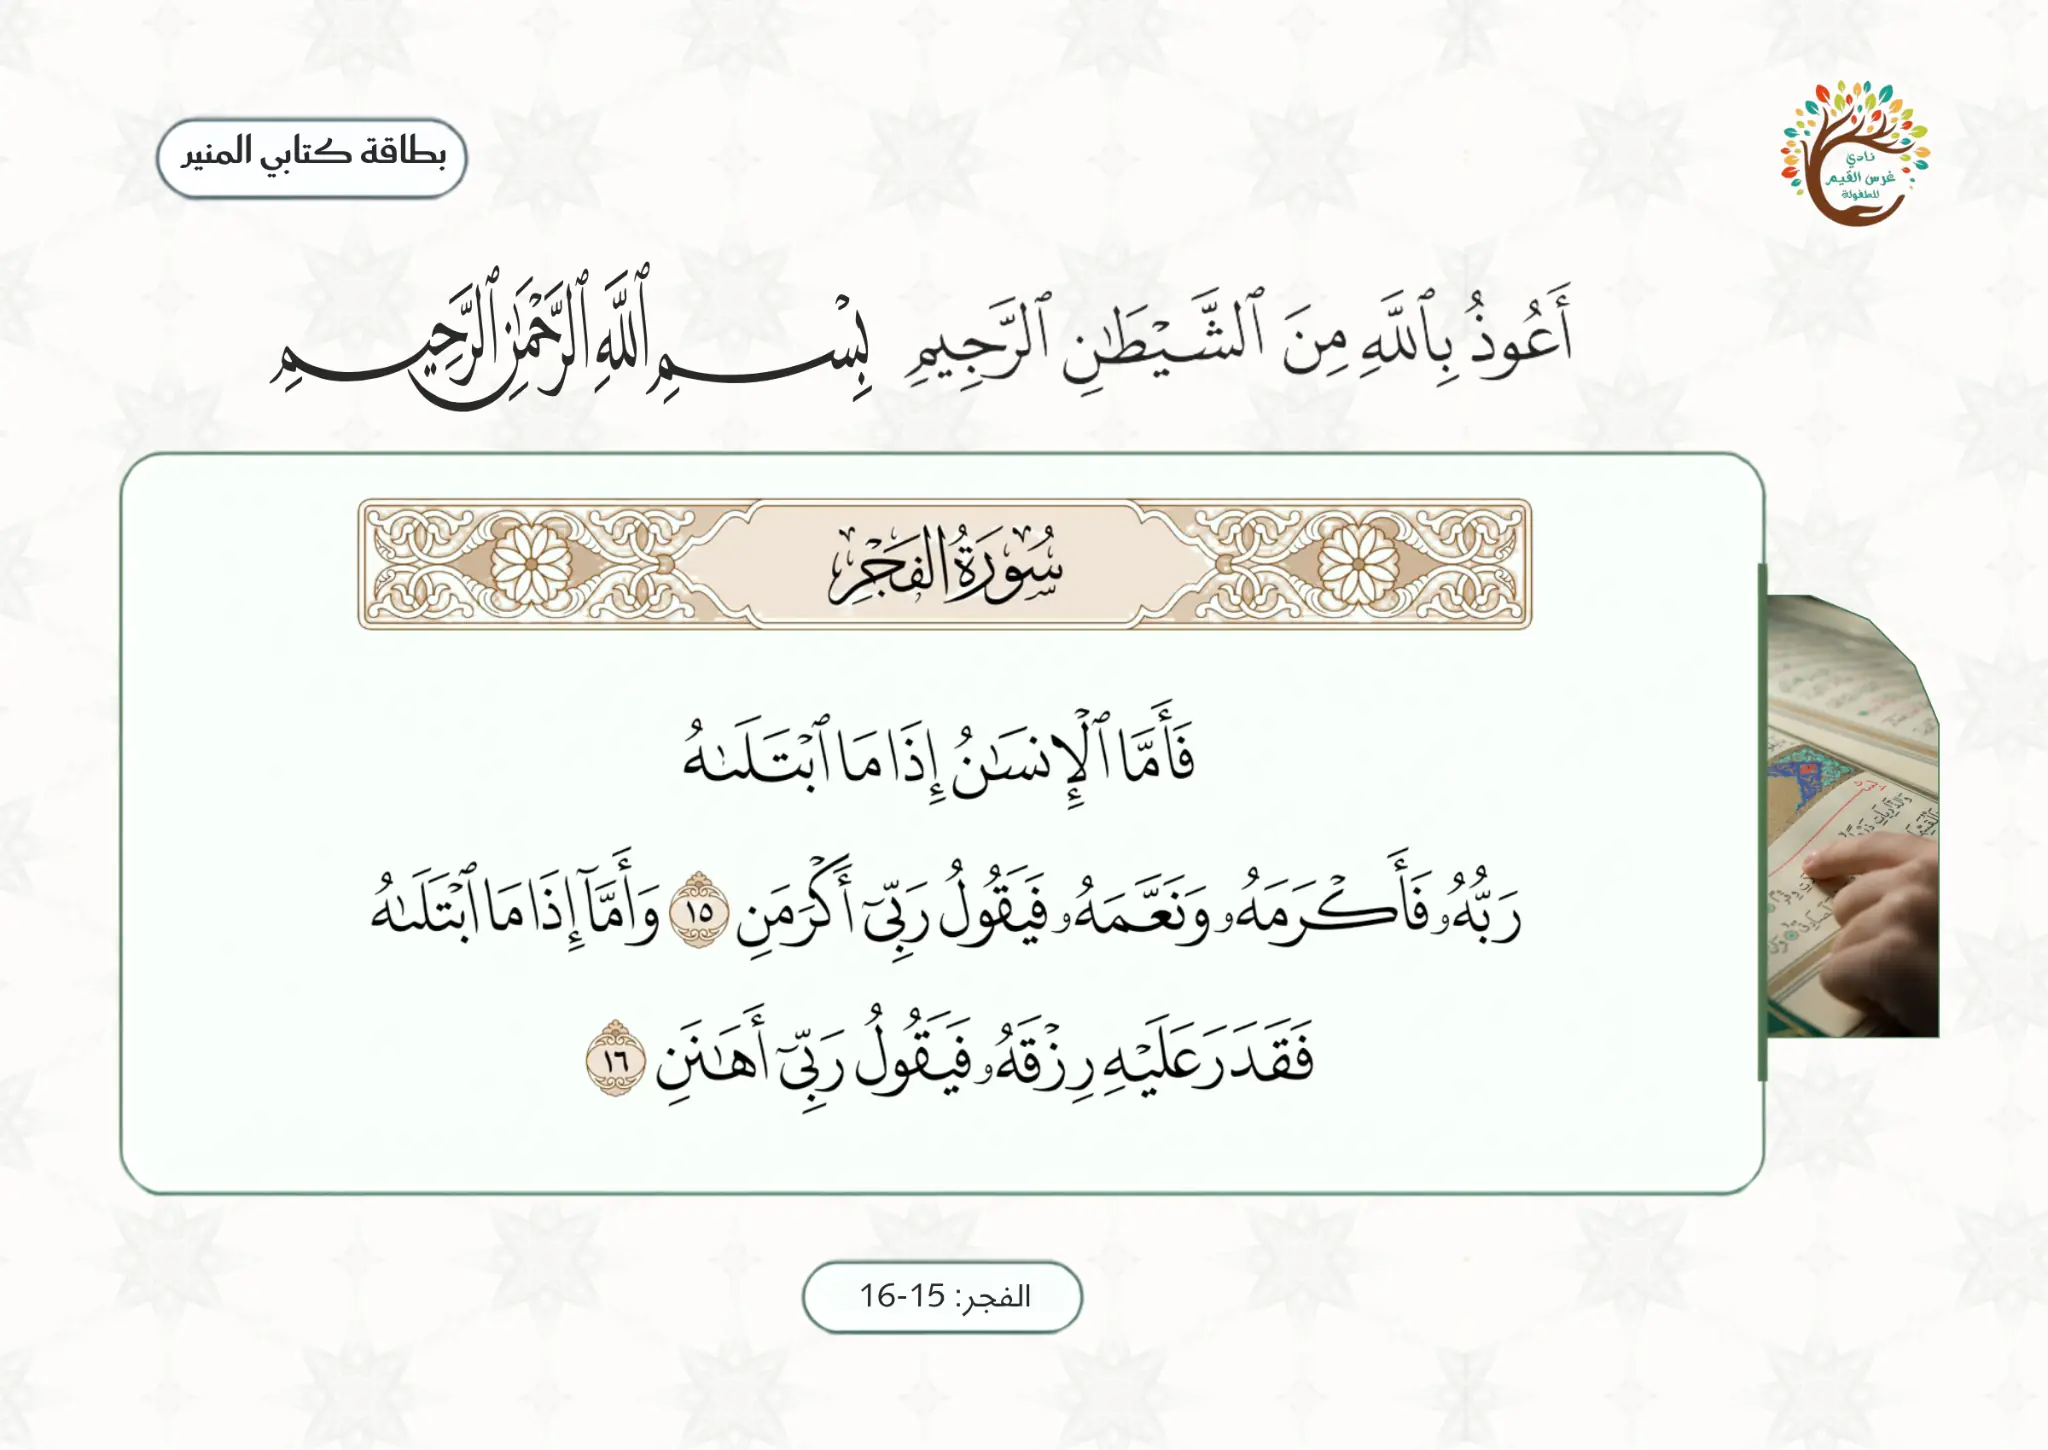 نادي
غرس القيم
للطفولة
بطاقة كتابي المنير
أَعُوذُ بِٱللَّهِ مِنَ ٱلشَّيْطَٰنِ ٱلرَّجِيمِ بِسْمِ ٱللَّهِ ٱلرَّحْمَٰنِ ٱلرَّحِيمِ
سُورَةُ الفَجْرِ
فَأَمَّا ٱلْإِنسَٰنُ إِذَا مَا ٱبْتَلَىٰهُ
رَبُّهُۥ فَأَكْرَمَهُۥ وَنَعَّمَهُۥ فَيَقُولُ رَبِّىٓ أَكْرَمَنِ ١٥ وَأَمَّآ إِذَا مَا ٱبْتَلَىٰهُ
فَقَدَرَ عَلَيْهِ رِزْقَهُۥ فَيَقُولُ رَبِّىٓ أَهَٰنَنِ ١٦
الفجر: 15-16